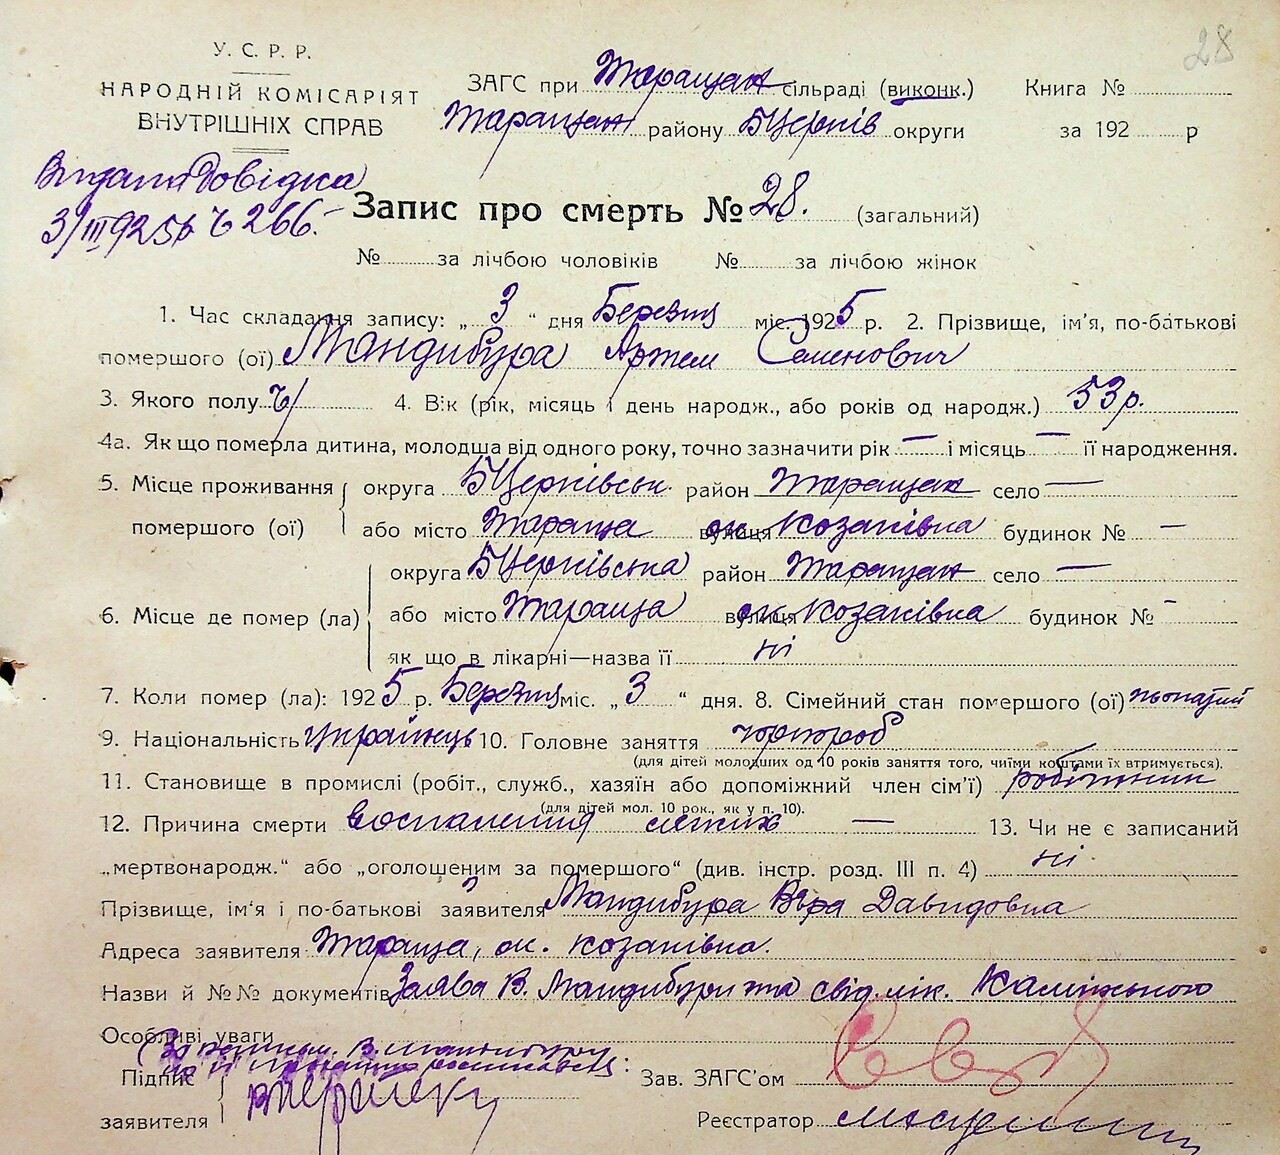 28
У. С. Р. Р.
НАРОДНІЙ КОМІСАРІЯТ
ВНУТРІШНІХ СПРАВ
ЗАГС при Таращан сільраді (виконк.) Книга №
Таращан району БЦерків округи за 192 р
Видана Довідка
3/III 925 р Ч 266.
Запис про смерть № 28. (загальний)
№ за лічбою чоловіків № за лічбою жінок
1. Час складання запису: „ 3 “ дня Березня міс. 1925 р. 2. Прізвище, ім'я, по-батькові
помершого (ої) Мандибура Артем Семенович
3. Якого полу Ч/ 4. Вік (рік, місяць і день народж., або років од народж.) 53 р.
4а. Як що померла дитина, молодша від одного року, точно зазначити рік — і місяць — її народження.
5. Місце проживання округа БЦерківськ. район Таращан село —
помершого (ої) або місто Тараща вулиця ок. Козаківна будинок № —
округа БЦерківська район Таращан село —
6. Місце де помер (ла) або місто Тараща вулиця ок. Козаківна будинок № -
як що в лікарні—назва її ні
7. Коли помер (ла): 1925 р. Березня міс. „ 3 “ дня. 8. Сімейний стан помершого (ої) жонатий
9. Національність Українець 10. Головне заняття чорнороб
(для дітей молодших од 10 років заняття того, чиїми коштами їх втримується).
11. Становище в промислі (робіт., служб., хазяїн або допоміжний член сім'ї) робітник
(для дітей мол. 10 рок., як у п. 10).
12. Причина смерти воспаления легких — 13. Чи не є записаний
„мертвонародж.“ або „оголошеним за помершого“ (див. інстр. розд. III п. 4) ні.
Прізвище, ім'я і по-батькові заявителя Мандибура Віра Давидовна
Адреса заявителя Тараща, ок. Козаківна.
Назви й №№ документів Заява В. Мандибури та свід лік. Камінського
Особливі уваги
Підпис Зав. ЗАГС'ом
заявителя Реєстратор